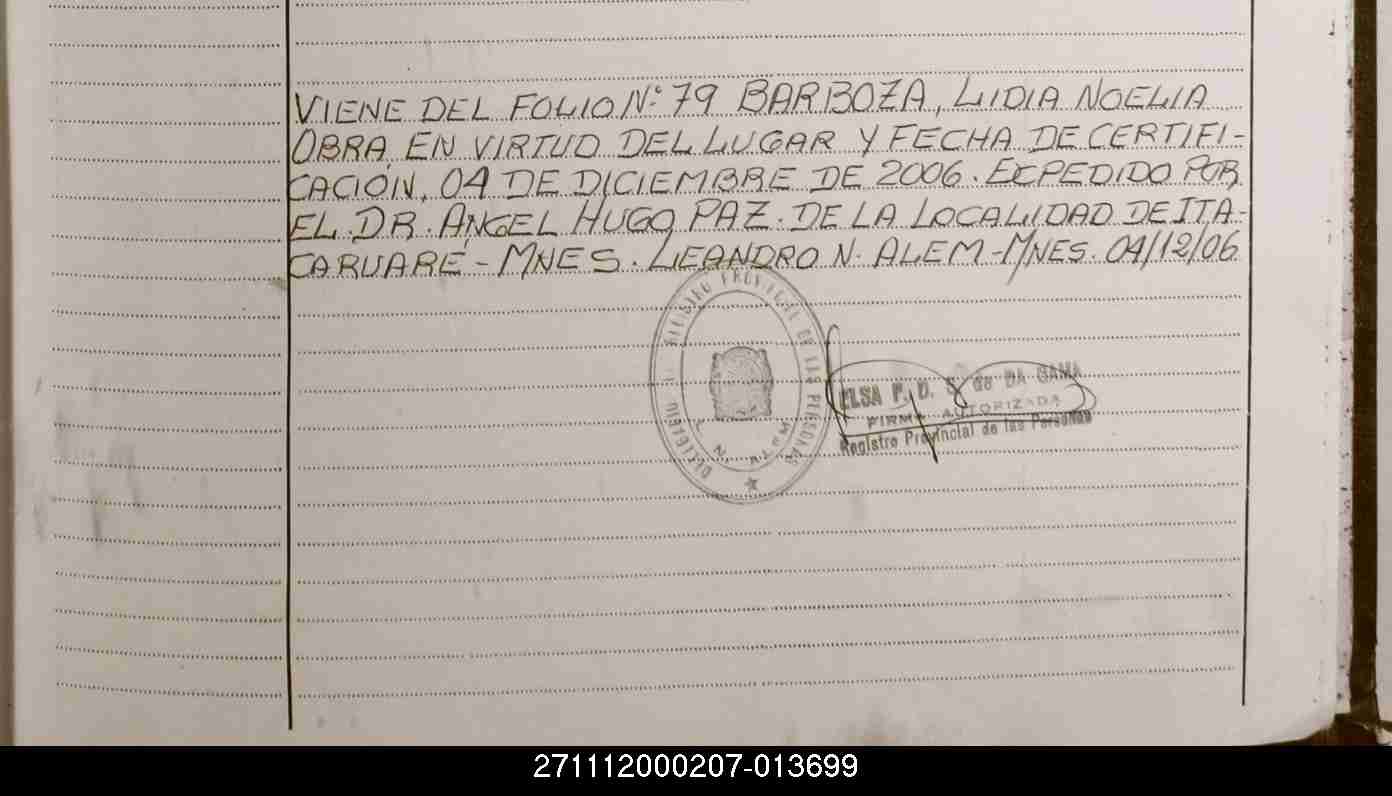 VIENE DEL FOLIO N° 79 BARBOZA, LIDIA NOELIA
OBRA EN VIRTUD DEL LUGAR Y FECHA DE CERTIFI-
CACIÓN, 04 DE DICIEMBRE DE 2006. ECPEDIDO POR
EL. DR. ANGEL HUGO PAZ. DE LA LOCALIDAD DE ITA-
CARUARE - MNES. LEANDRO N. ALEM - MNES. 04/12/06
REGISTRO PROVINCIAL DE LAS PERSONAS
L. N. ALEM
ELSA F. D. S. de DA GAMA
FIRMA AUTORIZADA
Registro Provincial de las Personas
271112000207-013699